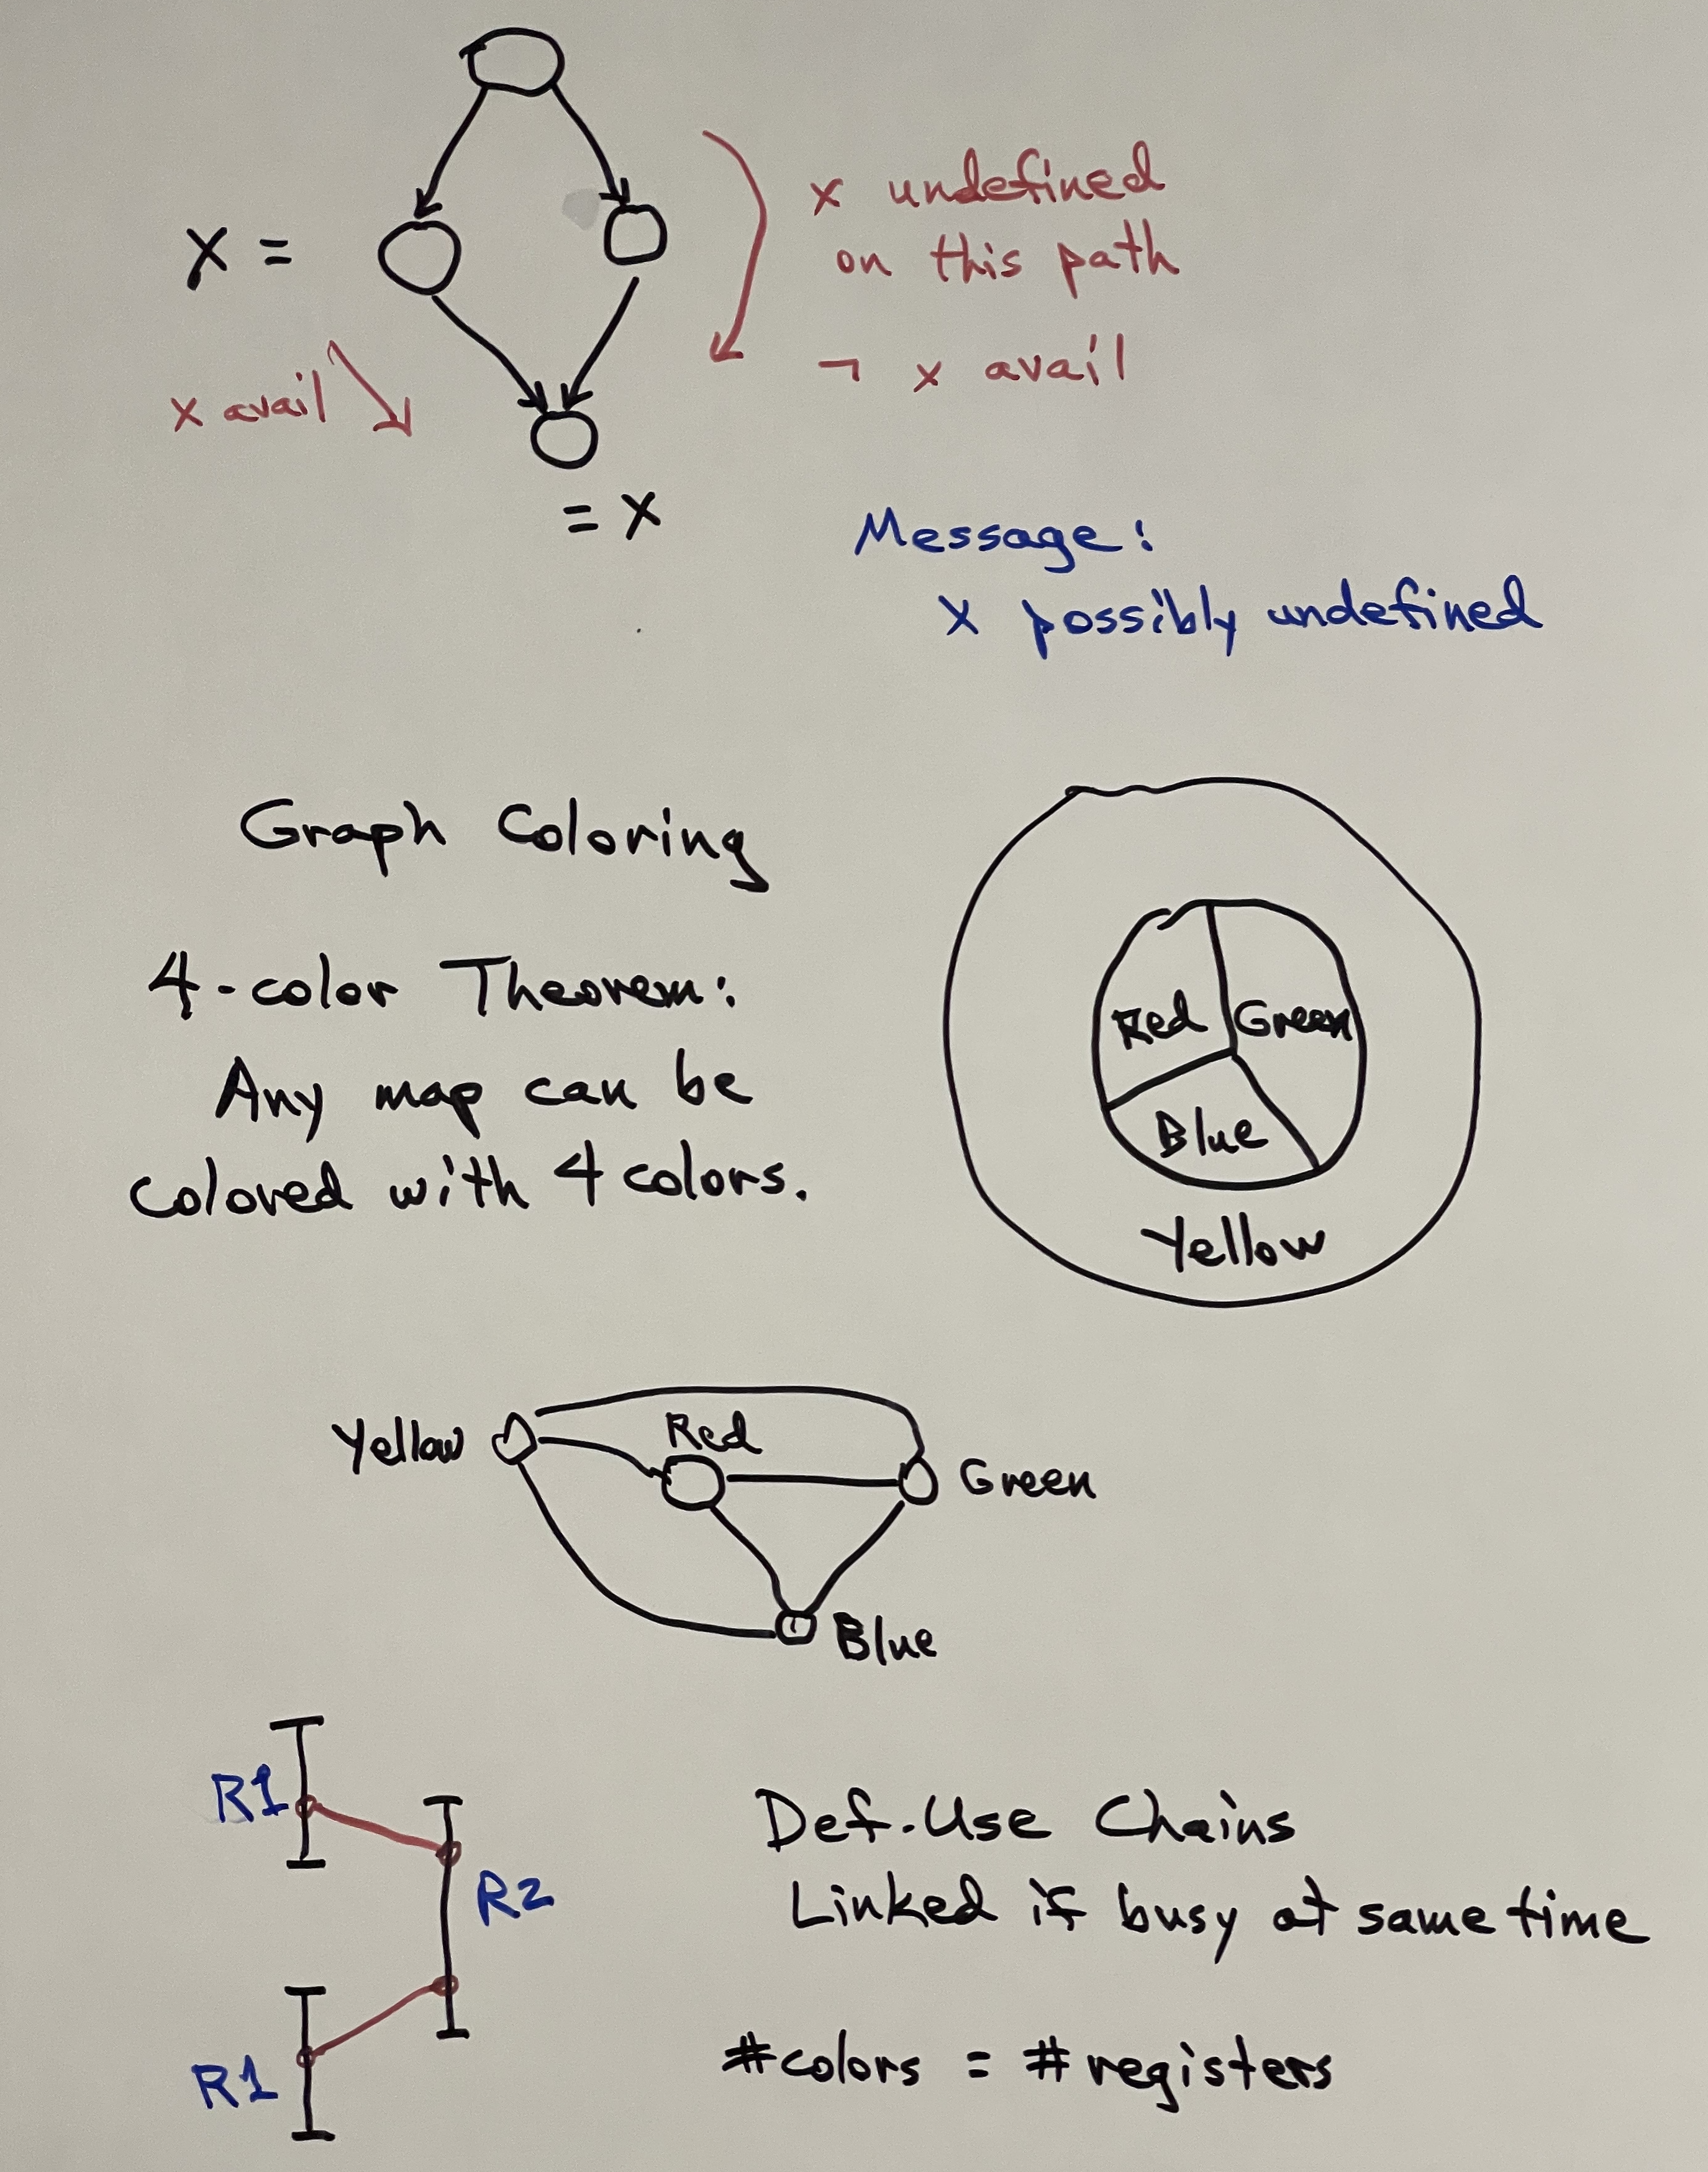 x undefined
X =
on this path
¬ x avail
x avail
= X
Message:
X possibly undefined
Graph Coloring
4-color Theorem:
Any map can be
colored with 4 colors.
Red Green
Blue
Yellow
Yellow
Red
Green
Blue
R1
R2
R1
Def-Use Chains
Linked if busy at same time
#colors = #registers